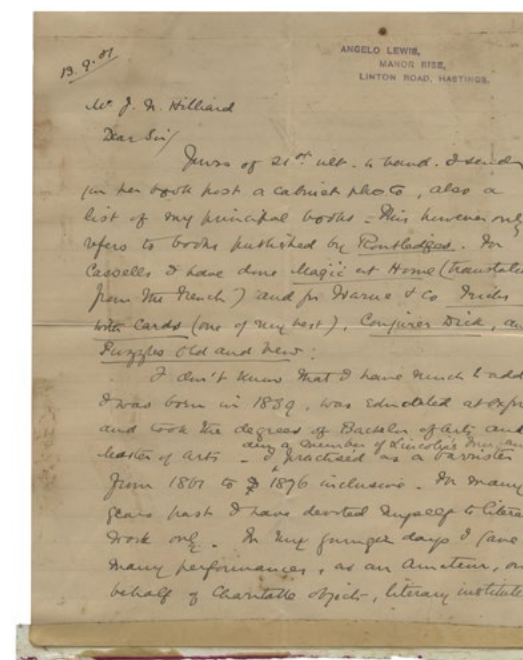 13.9.01
ANGELO LEWIS,
MANOR RISE,
LINTON ROAD, HASTINGS.
Mr J. N. Hilliard
Dear Sir/
Yours of 21st ult. to hand. I send
you per book post a cabinet photo, also a
list of my principal books - This however only
refers to books published by Routledges. For
Cassells I have done Magic at Home (translated
from the French) and for Warne & Co Tricks
with Cards (one of my best), Conjurer Dick, and
Puzzles Old and New:
I don't know that I have much to add
I was born in 1839, was educated at Oxfo
and took the degrees of Bachelor of Arts and
am a member of Lincoln's Inn, an
Master of Arts - I practised as a barrister
from 1861 to 1876 inclusive. For many
years past I have devoted myself to litera
work only. In my younger days I gave
many performances, as an Amateur, on
behalf of charitable objects, literary institute